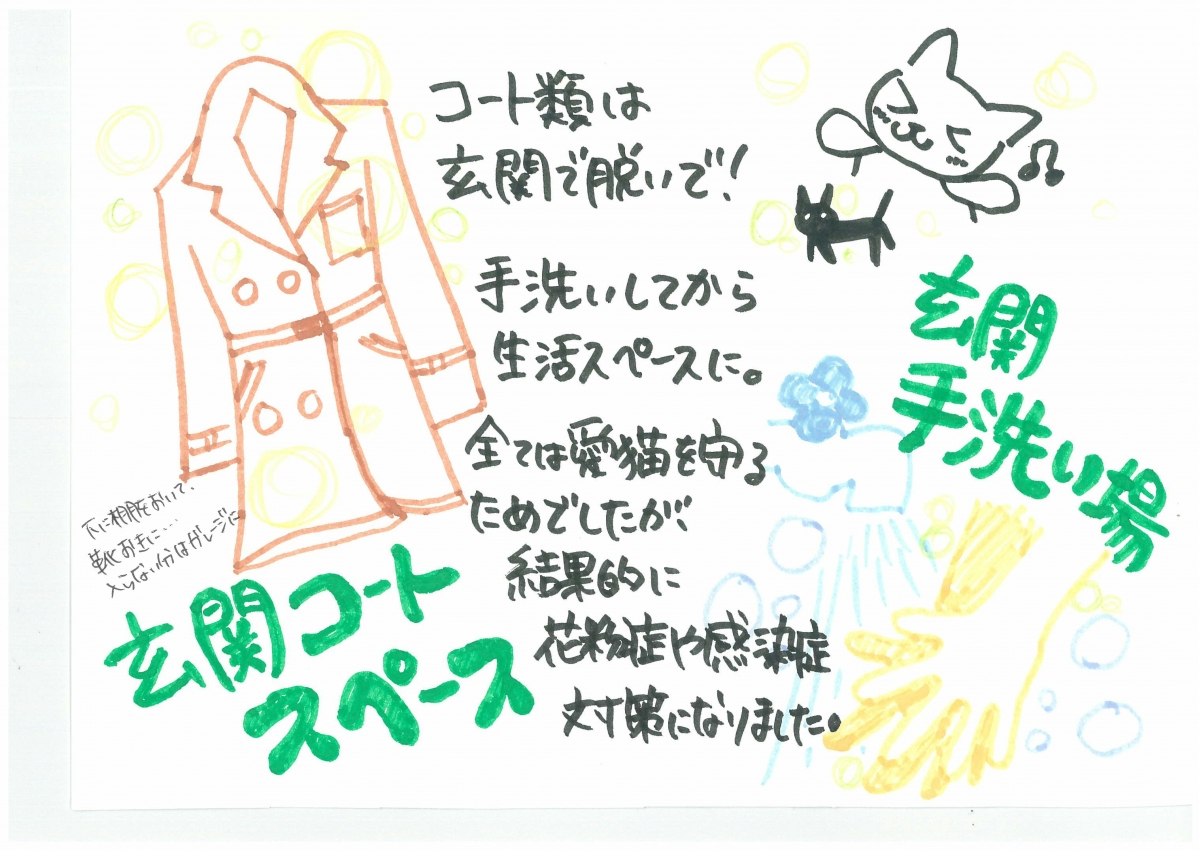 コート類は
玄関で脱いで！
手洗いしてから
生活スペースに。
全ては愛猫を守る
ためでしたが
結果的に
花粉症や感染症
対策になりました。
玄関
手洗い場
下に棚をおいて、
靴おきに…
入らない分はガレージに
玄関コート
スペース